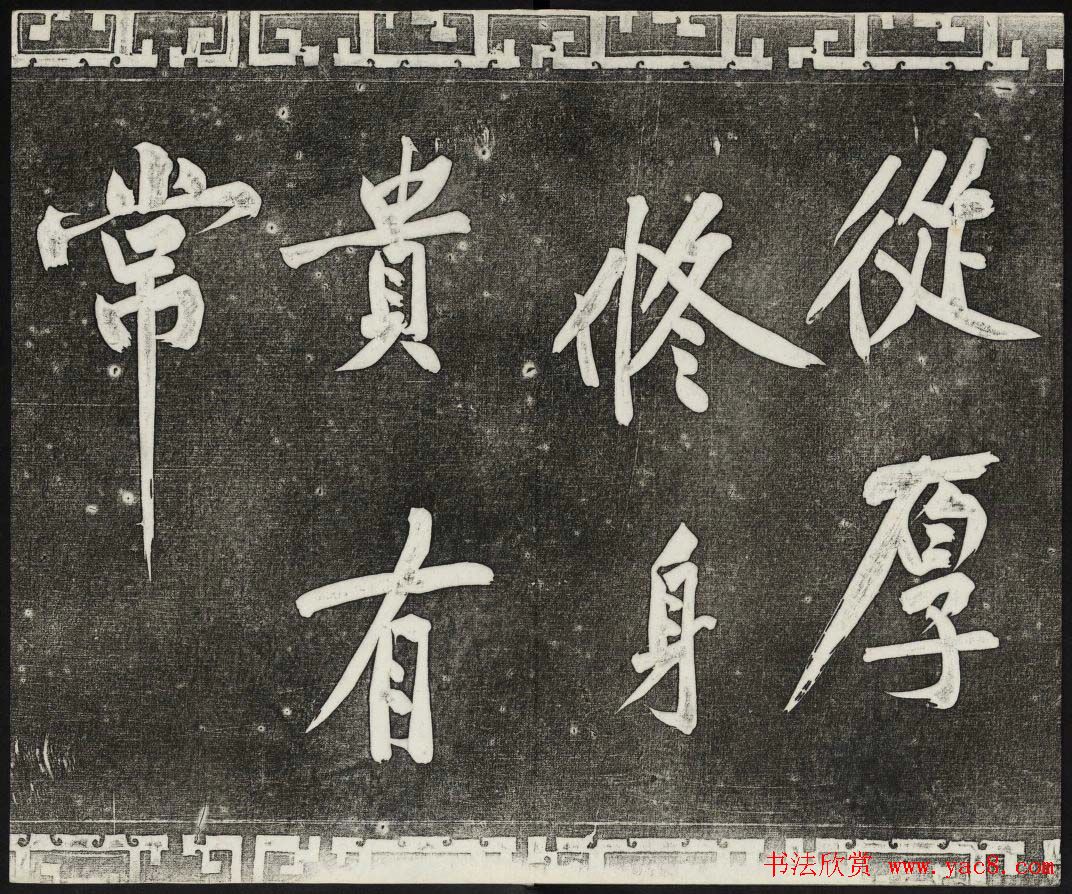 從厚
修身
貴有
常
书法欣赏 www.yac8.com